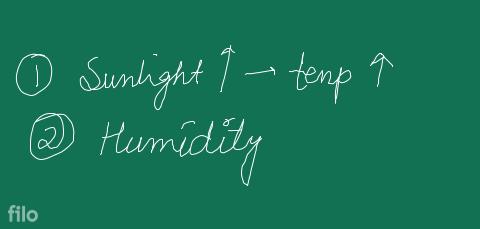 ① Sunlight ↑ → temp ↑
② Humidity
filo